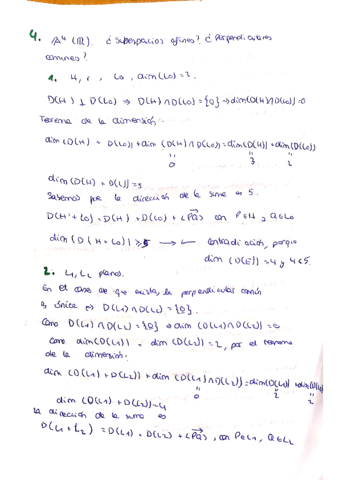 4. A⁴(R). ¿Subespacios afines? ¿Perpendiculares
comunes?
1. H, , L₀, dim(L₀)=2.
D(H) ⊥ D(L₀) ⇒ D(H)∩D(L₀)={0} ⇒ dim(D(H)∩D(L₀))=0
Teorema de la dimensión:
dim(D(H) + D(L₀)) + dim(D(H)∩D(L₀)) = dim(D(H)) + dim(D(L₀))
" " "
0 3 2
dim(D(H) + D(L))=5
Sabemos que la dirección de la suma es 5.
D(H+L₀) = D(H) + D(L₀) + <PQ> con P∈H y Q∈L₀
dim(D(H+L₀)) ≥5 contradicción, porque
dim(D(E))=4 y 4<5.
2. L₁, L₂ planos.
En el caso de que exista, la perpendicular común
es única ⇔ D(L₁)∩D(L₂) = {0}.
Como D(L₁)∩D(L₂) = {0} ⇒ dim(D(L₁)∩D(L₂))=0
Como dim(D(L₁)) = dim(D(L₂))=2, por el teorema
de la dimensión:
dim(D(L₁) + D(L₂)) + dim(D(L₁)∩D(L₂)) = dim(D(L₁)) + dim(D(L₂))
" " "
0 2 2
dim(D(L₁) + D(L₂))=4
La dirección de la suma es
D(L₁+L₂) = D(L₁) + D(L₂) + <PQ>, con P∈L₁, Q∈L₂